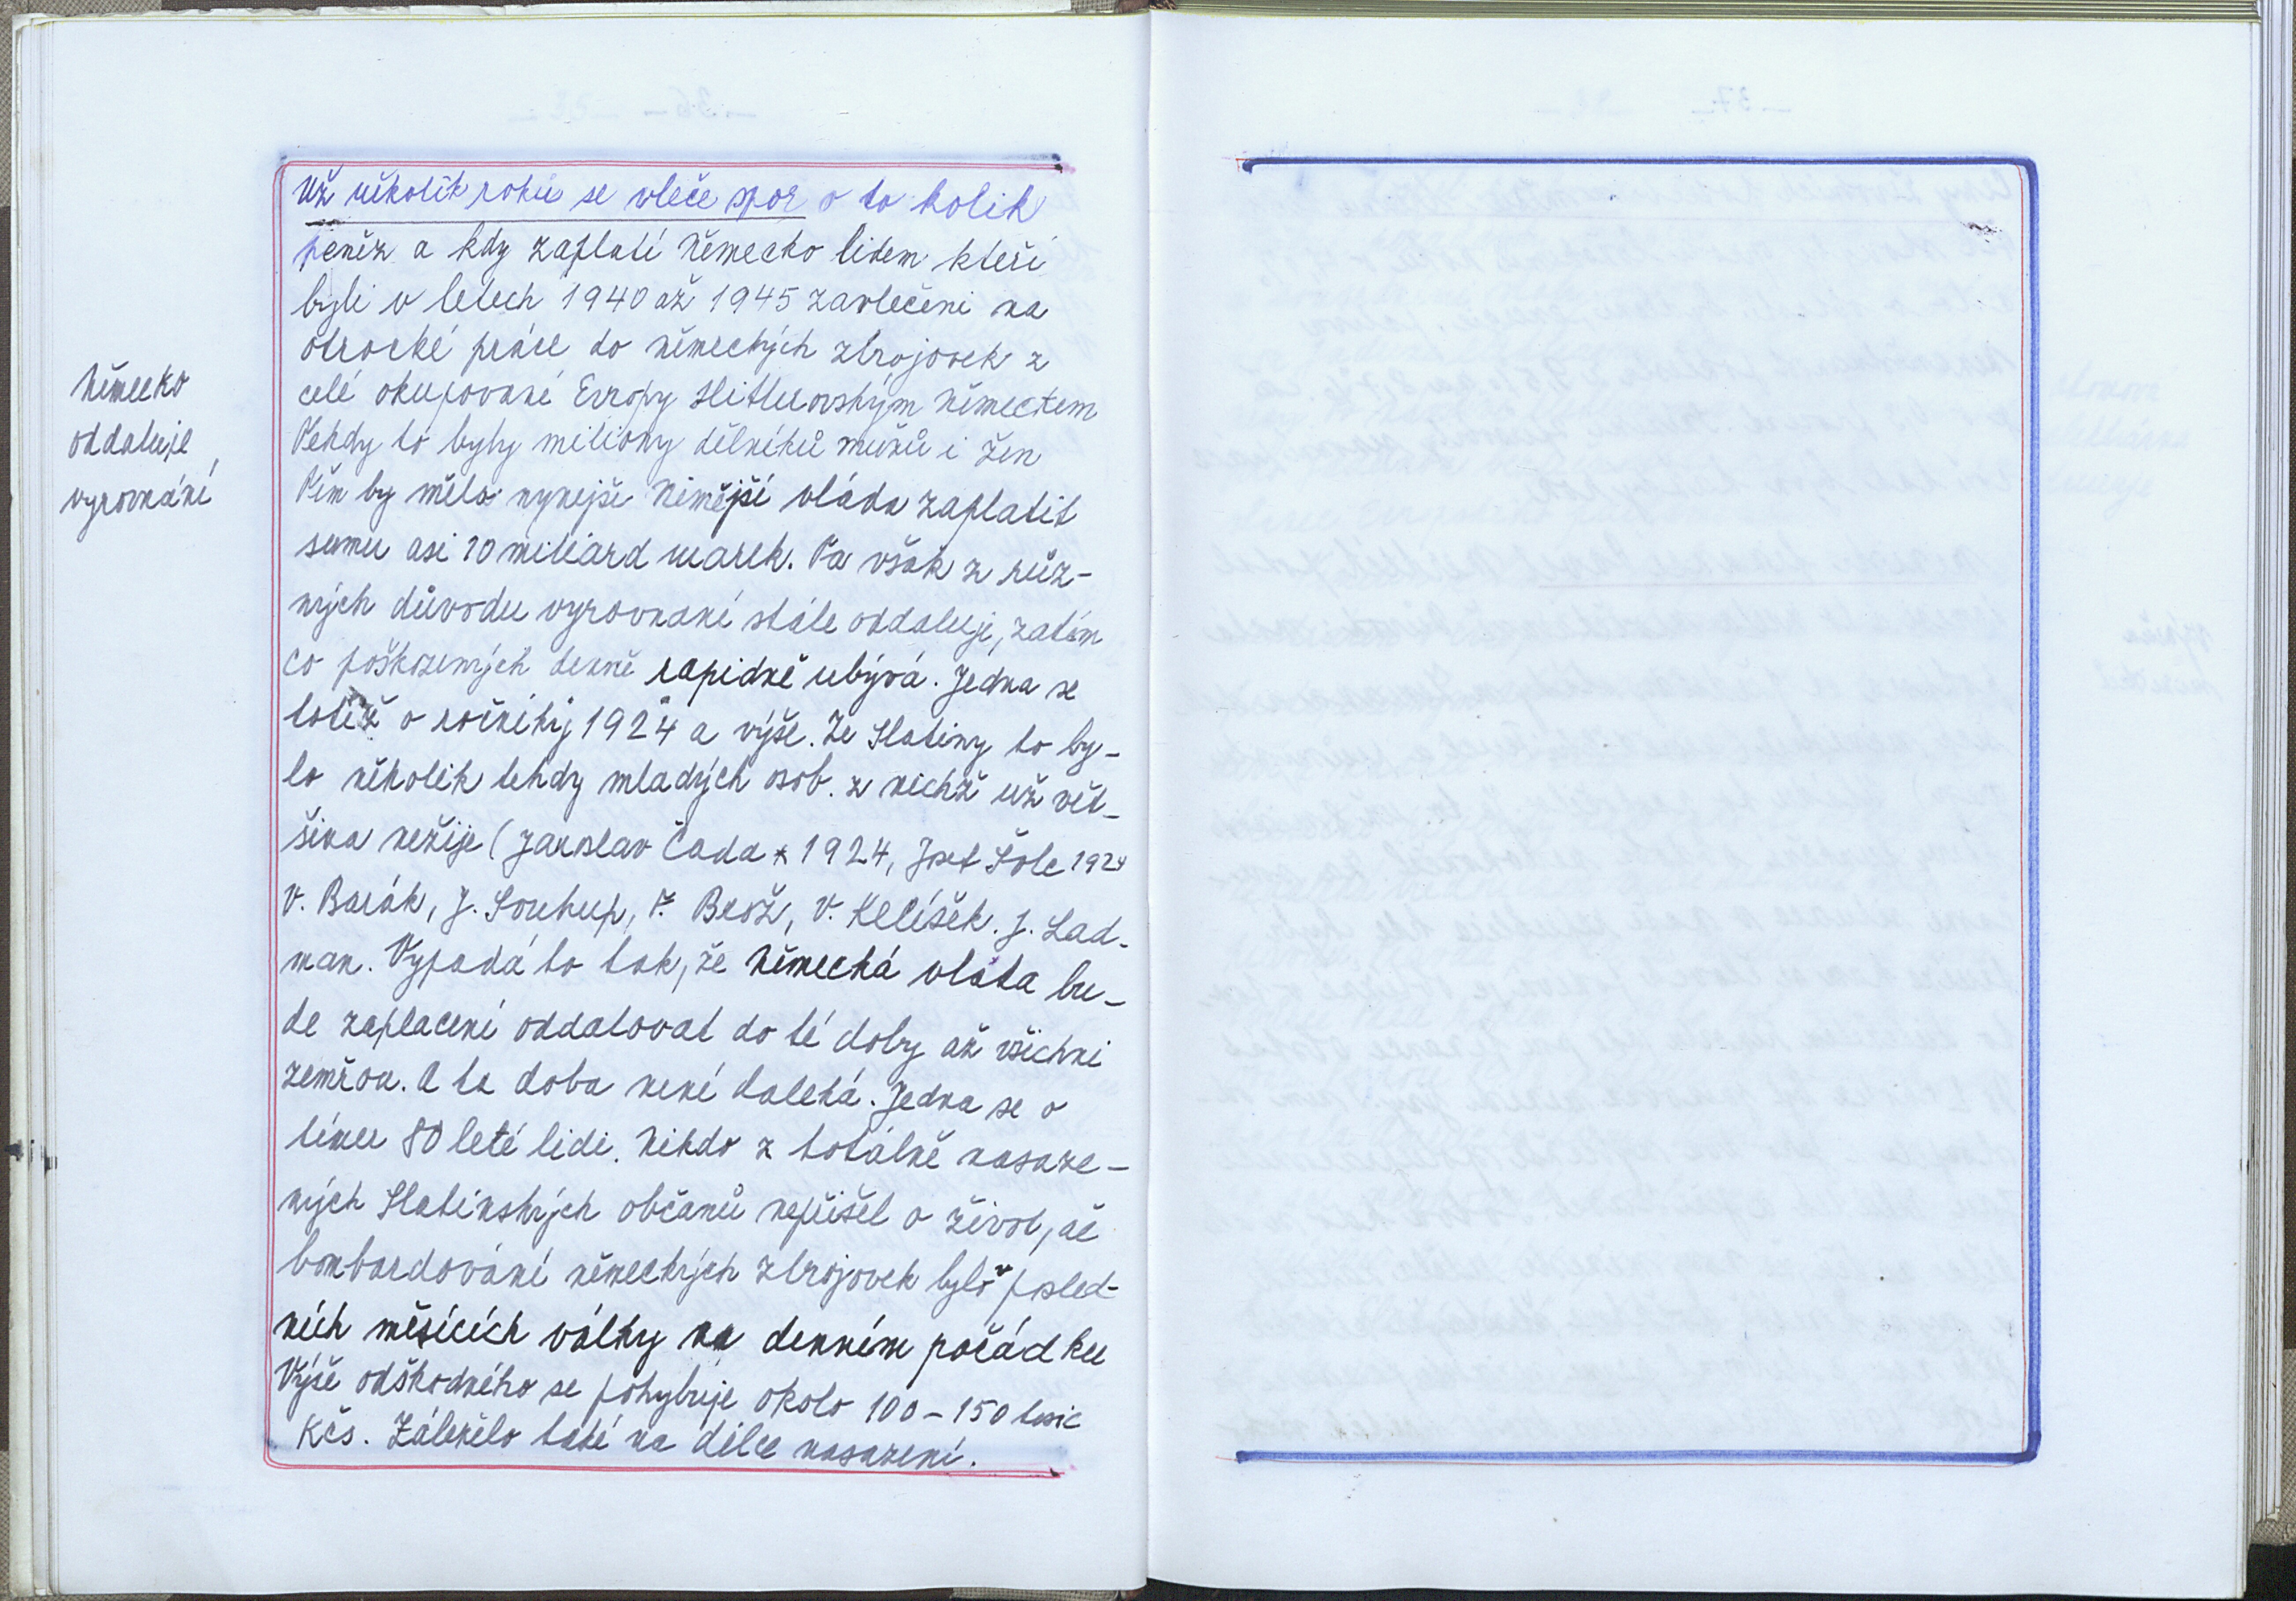 Německo
oddaluje
vyrovnání
Už několik roků se vleče spor o to kolik
peněz a kdy zaplatí Německo lidem kteří
byli v letech 1940 až 1945 zavlečeni na
otrocké práce do německých zbrojovek z
celé okupované Evropy Hitlerovským Německem
Tehdy to byly miliony dělníků mužů i žen
Těm by měla nynejše Nimější vláda zaplatit
sumu asi 10 miliard marek. Ta však z růz-
ných důvodu vyrovnaní stále oddaluje, zatím
co poškozených denně rapidně ubývá. Jedna se
totiž o ročníky 1924 a výše. Ze Slatiny to by-
lo několik tehdy mladých osob. z nichž už vět-
šina nežije (Jaroslav Čada * 1924, Josef Šolc 1924
V. Barák, J. Souhup, F. Brož, V. Klíšek. J. Lad-
man. Vypadá to tak, že Německá vláda bu-
de zaplacení oddalovat do té doby až všichni
zemřou. A ta doba není daleká. Jedna se o
téměr 80 leté lidi. Nikdo z totálně nasaze-
ných Slatinských občanů nepřišel o život, ač
bombardování německých zbrojovek bylo v posled-
ních měsících války na denním pořádku
Výše odškodného se pohybuje okolo 100-150 tisic
Kčs. Záleželo také na délce nasazení.